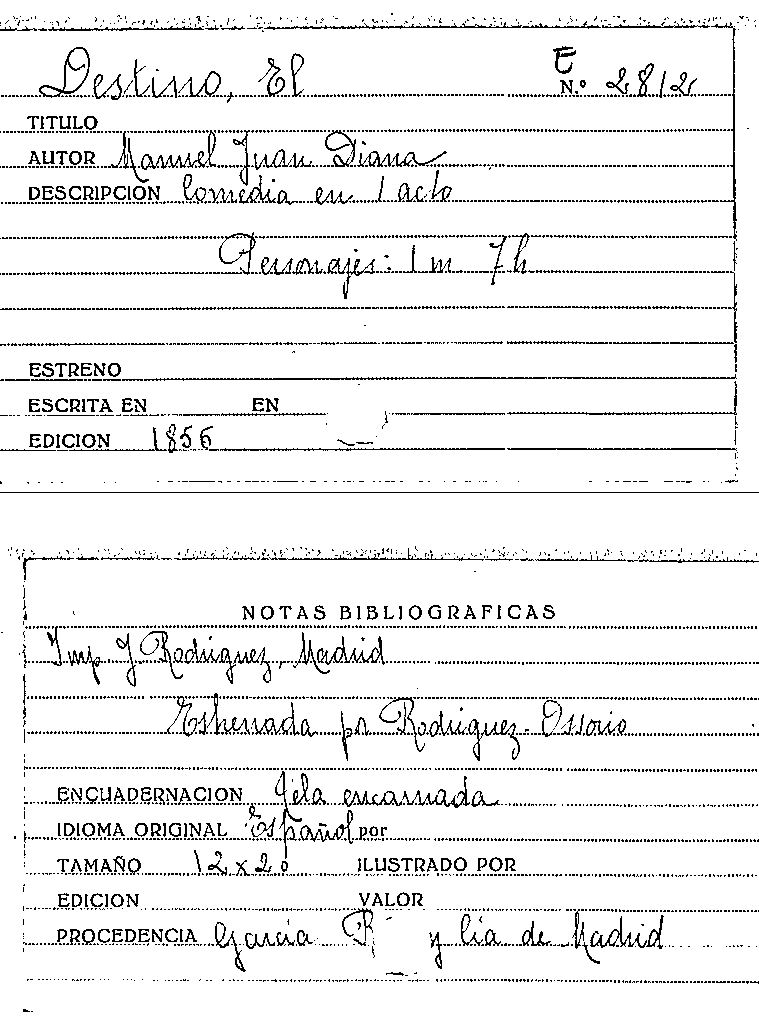 Destino, El E
N.º 2812
TITULO
AUTOR Manuel Juan Diana
DESCRIPCIÓN Comedia en 1 acto
Personajes: 1 m 7 h
ESTRENO
ESCRITA EN EN
EDICION 1856
NOTAS BIBLIOGRAFICAS
Imp J Rodriguez, Madrid
Estrenada por Rodriguez-Ossorio
ENCUADERNACION Tela encarnada
IDIOMA ORIGINAL Español por
TAMAÑO 12 x 20 ILUSTRADO POR
EDICION VALOR
PROCEDENCIA García R y Cía de Madrid